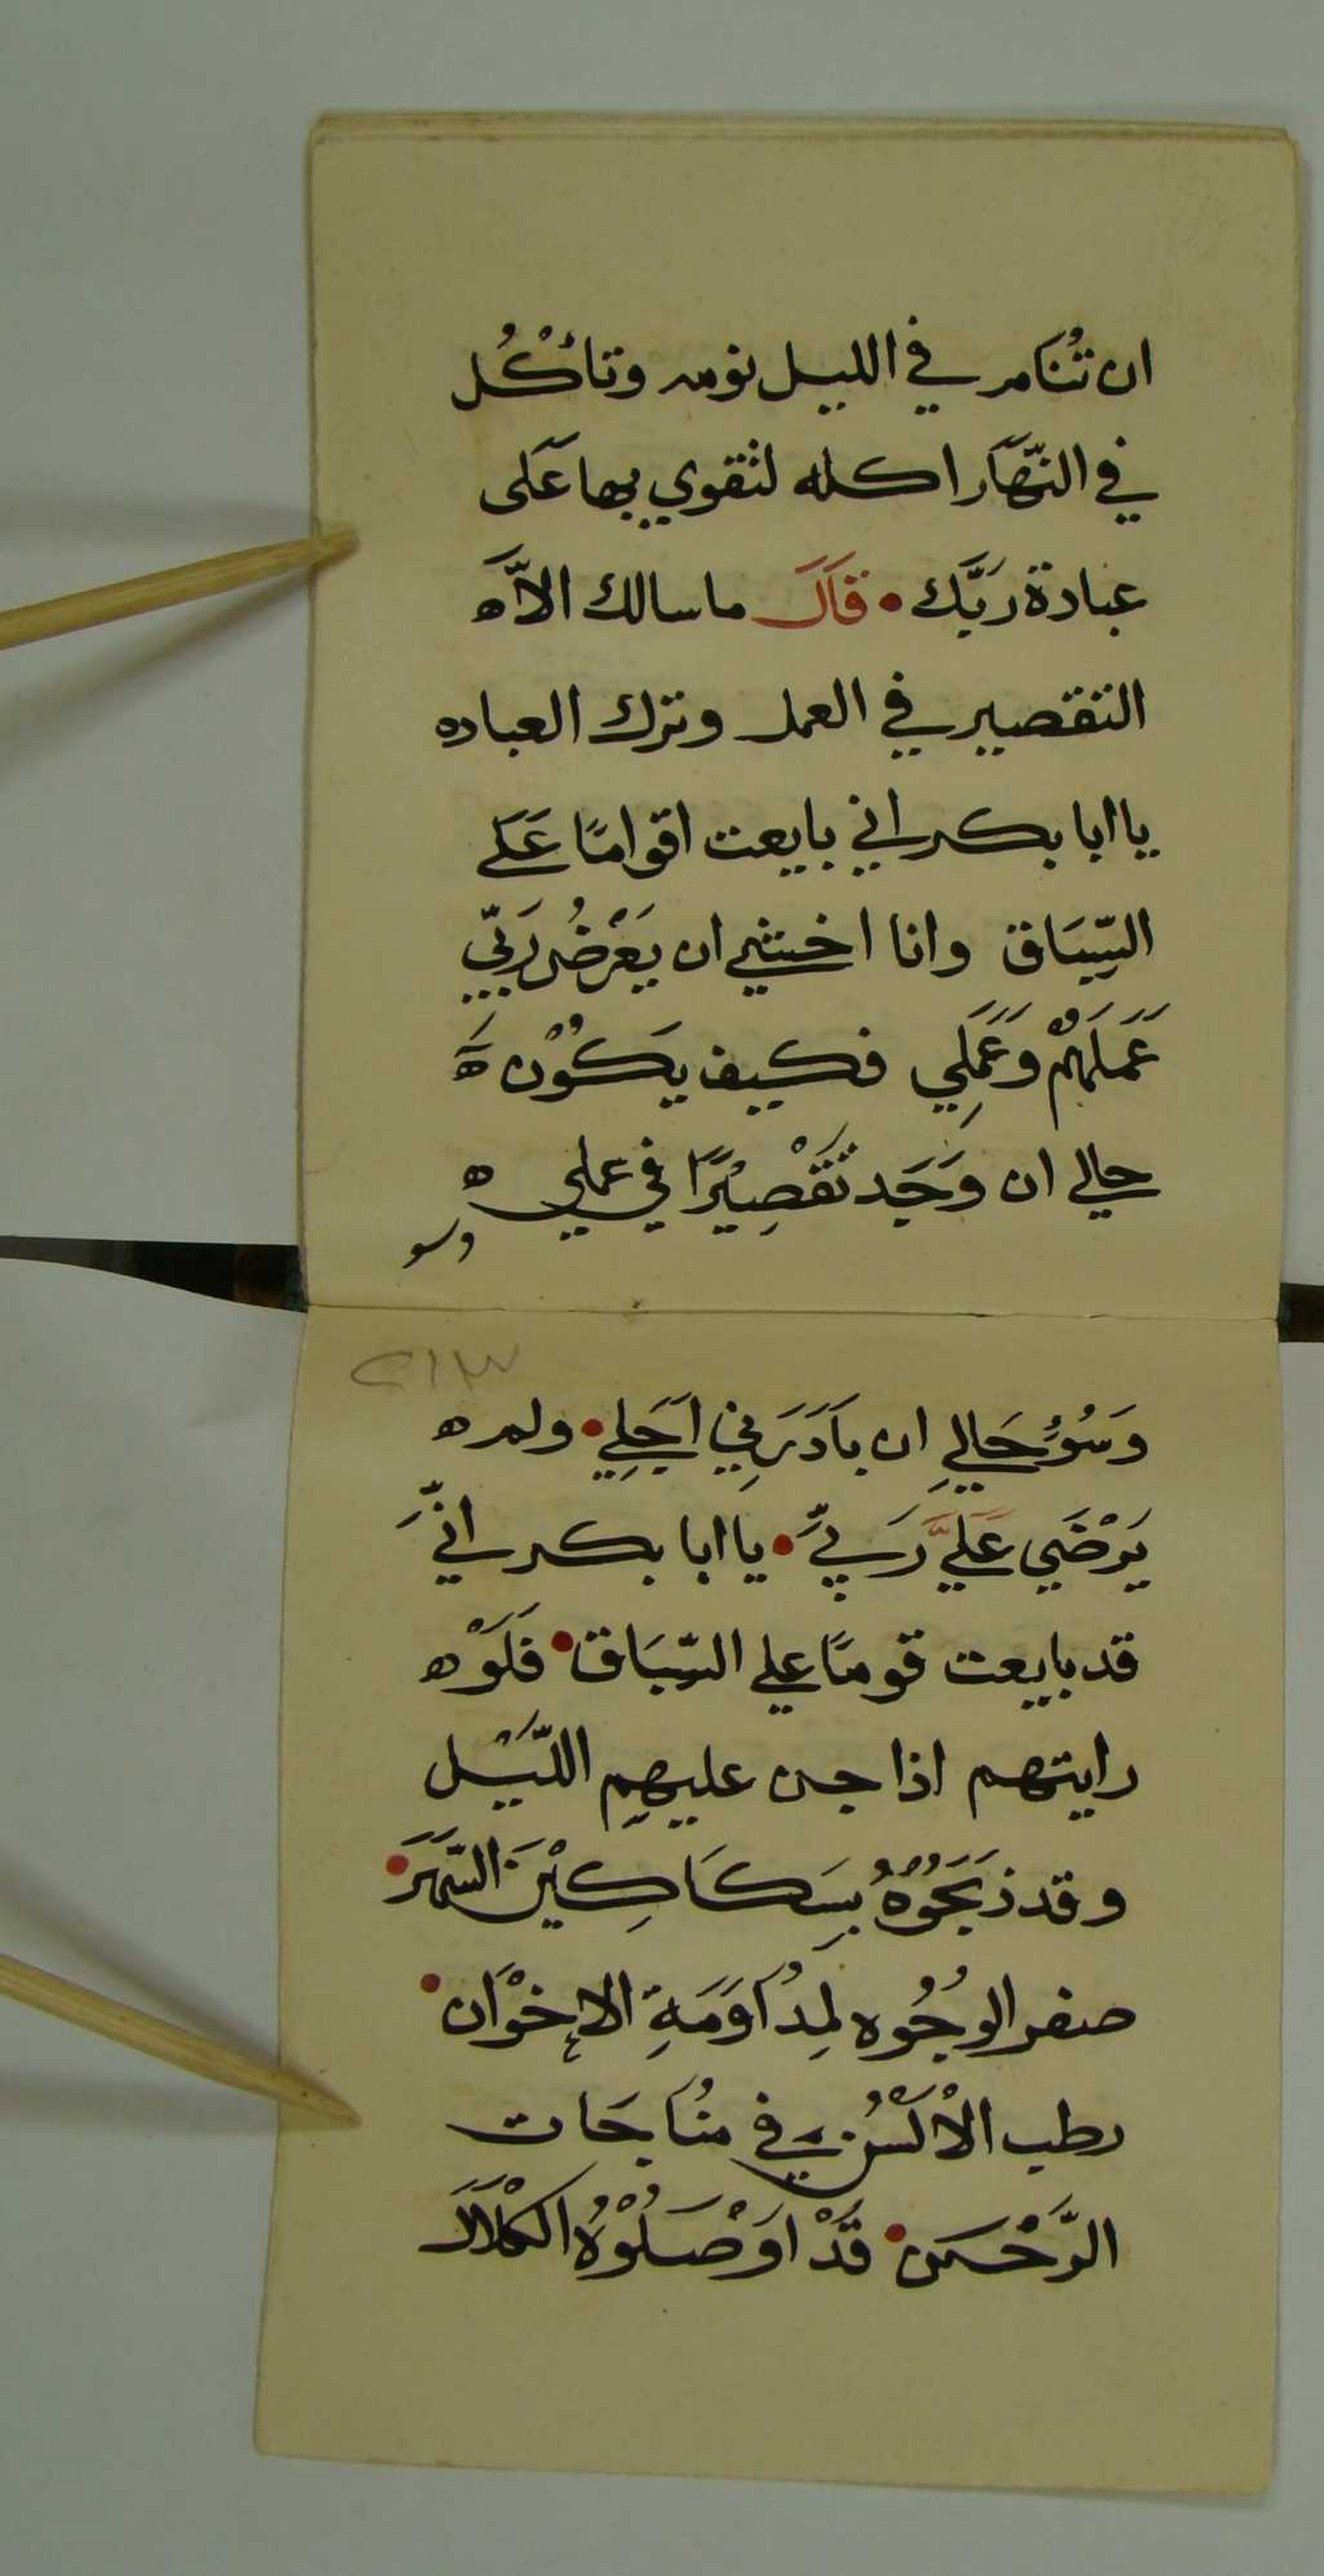 ان تُنَام في الليل نومه وتأكُل
في النّهَار اكله لتقوي بها عَلى
عبادة رَبّك • قَالَ ما سالك الاّ ه
التقصير في العمل وترك العباده
يا ابا بكر اني بايعت اقوامًا عَلَي
السِّبَاق وانا اخشي ان يَعْرضُ رَبّي
عَمَلَهُمْ وَعَمَلِي فكيف يَكُوْن ه
حالي ان وَجَد تَقْصِيْرًا في عملي ه
وسو
٢١٣
وَسُوُء حَالِي ان بَادَرَنِي اَجَلِي • ولم ه
يَرْضَي عَلَيَّ رَبيَّ • يا ابا بكر انيَّ
قد بايعت قومًا علي السِّبَاق • فَلَوْ ه
رايتهم اذا جن عليهِم اللّيْل
وقد ذَبَحُوْهُ بِسَكَاكِيْنَ السَّهَرَ •
صفر الوُجُوه لِمدُاوَمَةِ الاِخوْان •
رطب الاْلسُن في مُنَاجَات
الرَّحْمن • قَدْ اوَصَلُوْهُ الكْلَالَ